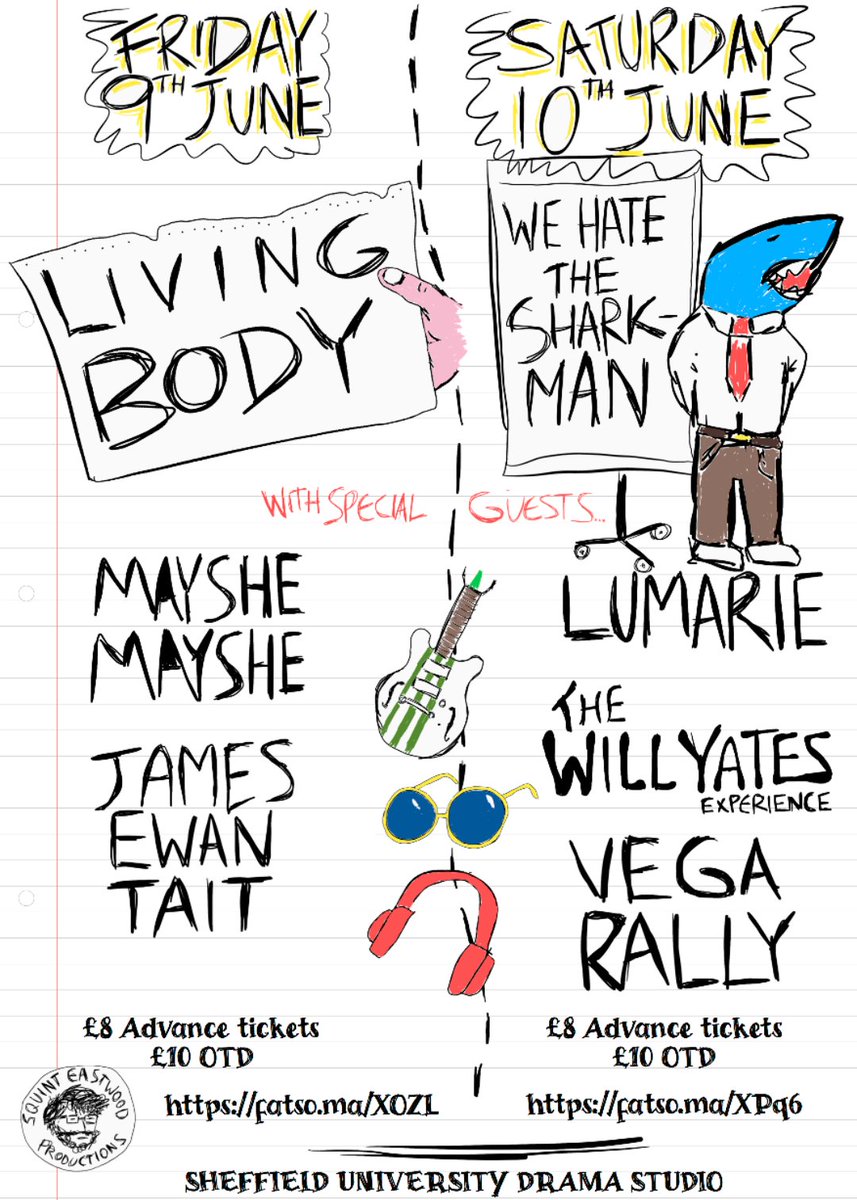 FRIDAY
9TH JUNE
LIVING
BODY
SATURDAY
10TH JUNE
WE HATE
THE
SHARK-
MAN
WITH SPECIAL GUESTS...
MAYSHE
MAYSHE
JAMES
EWAN
TAIT
LUMARIE
THE
WILL YATES
EXPERIENCE
VEGA
RALLY
£8 Advance tickets
£10 OTD
https://fatso.ma/XOZL
£8 Advance tickets
£10 OTD
https://fatso.ma/XPq6
SQUINT EASTWOOD
PRODUCTIONS
SHEFFIELD UNIVERSITY DRAMA STUDIO